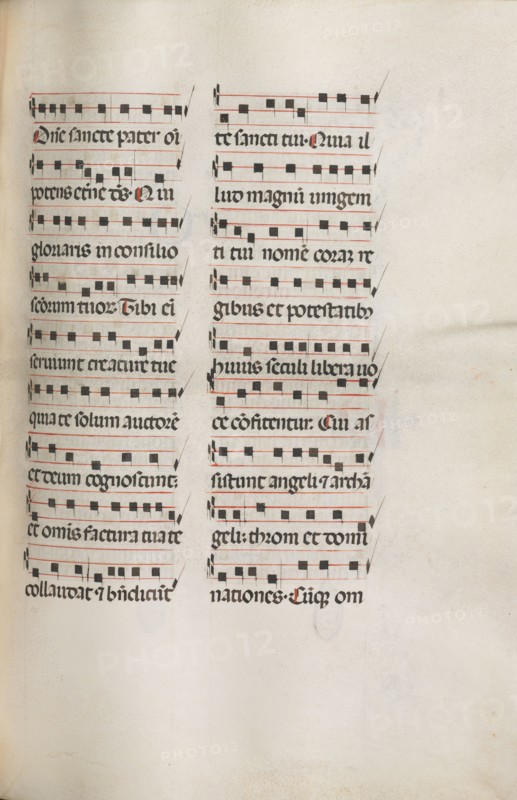 Dn̄e sancte pater om̄
potens et̄ne ds̄. Qui
gloriaris in consilio
sc̄orum tuor. Tibi em̄
seruiunt creature tue
quia te solum auctorē
et deum cognoscunt:
et om̄is factura tua te
collaudat ⁊ bn̄dicūt
te sancti tui. Quia il
lud magnū unigeni
ti tui nomē coraꝫ re
gibus et potestatibꝫ
huius seculi libera uo
ce cōfitentur. Cui as
sistunt angeli ⁊ archā
geli: throni et domi
nationes. Cūqꝫ om
PHOTO12